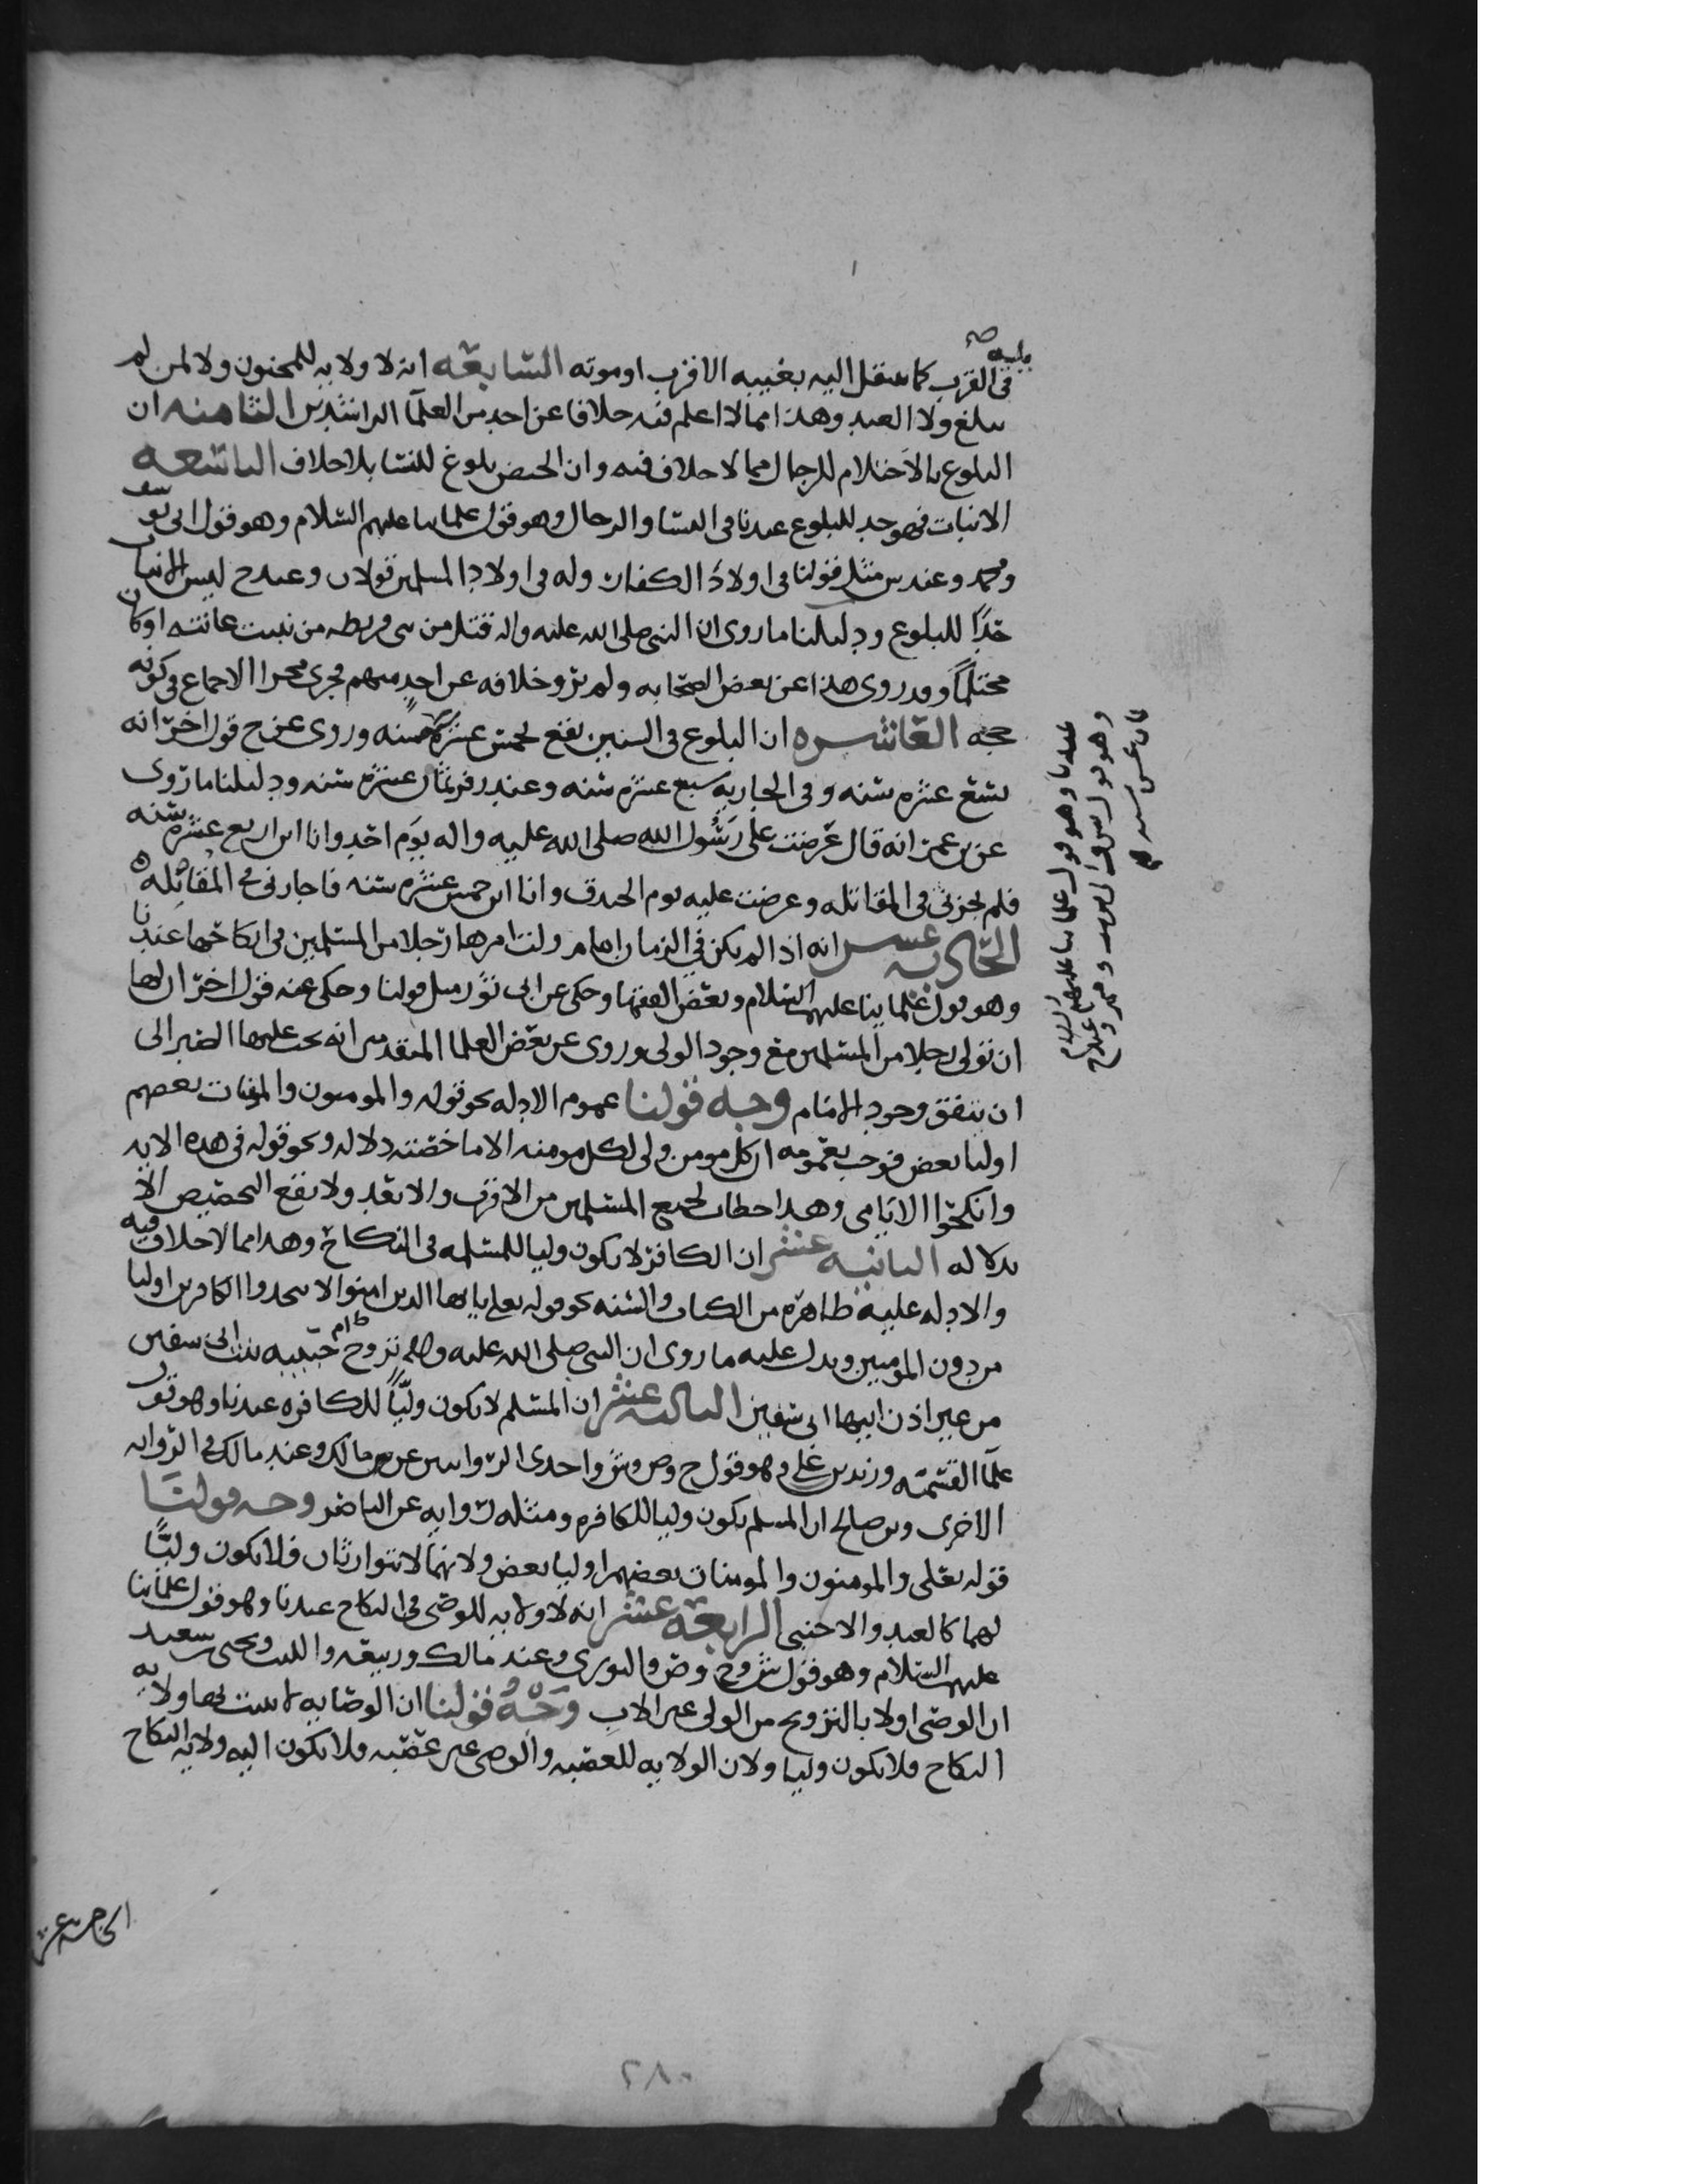 يليه صح
في القرب كما ينتقل اليه بغيبه الاقرب او موته السابعه انه لا ولايه للمجنون ولا لمن لم
يبلغ ولا العبد وهذا مما لا اعلم فيه خلافا عن احد من العلمآ الراشدين الثامنه ان
البلوغ بالاحتلام للرجال مما لا خلاف فيه وان الحيض بلوغ للنسا بلا خلاف التاسعه
الانبات فهو حد للبلوغ عندنا في النسا والرجال وهو قول علمائنا عليهم السلام وهو قول ابي يوسف
ومحمد وعند ش مثل قولنا في اولاد الكفار وله في اولاد المسلمين قولان وعند ح ليس الانبات
حدًا للبلوغ ودليلنا ما روي ان النبي صلى الله عليه واله قتل من بني قريظه من نبت عانته او كان
محتلمًا وقد روي هذا عن بعض الصحابه ولم يرو خلافه عن احد منهم فجرى مجرا الاجماع في كونه
حجه العاشره ان البلوغ في السنين يقع لخمس عشره سنه وروي عن ح قول اخر انه
بتسع عشره سنه وفي الجاريه سبع عشره سنه وعند زفر بثمان عشره سنه ودليلنا ما روي
عن بن عمر انه قال عرضت على رسول الله صلى الله عليه واله يوم احد وانا ابن اربع عشره سنه
فلم يجزني في المقاتله وعرضت عليه يوم الخندق وانا ابن خمس عشره سنه فاجازني في المقاتله
الحاديه عشر انه اذا لم يكن في الزمان امام ولت امرها رجلا من المسلمين في انكاحها عندنا
وهو قول علماينا عليهم السلام وبعض الفقها وحكي عن ابي ثور مثل قولنا وحكي عنه قول اخر ان لها
ان تولي رجلا من المسلمين مع وجود الولي وروي عن بعض العلما المتقدمين انه يجب عليها الصبر الى
ان يتفق وجود الامام وجه قولنا عموم الادله نحو قوله والمومنون والمومنات بعضهم
اوليا بعض فوجب بعمومه ان كل مومن ولي لكل مومنه الا ما خصته دلاله ونحو قوله في هذه الايه
وانكحوا الايامى وهذا خطاب لجميع المسلمين من الاقرب والابعد ولا يقع التخصيص الا
بدلاله الثانيه عشر ان الكافر لا يكون وليا للمسلمه في النكاح وهذا مما لا خلاف فيه
والادله عليه ظاهره من الكتاب والسنه نحو قوله تعلى يايها الذين امنوا لا تتخذوا الكافرين اوليا
من دون المومنين ويدل عليه ما روي ان النبي صلى الله عليه واله تزوج ام حبيبه بنت ابي سفين
من غير اذن ابيها ابي سفين الثالثه عشر ان المسلم لا يكون وليًّا للكافره عندنا وهو قول
علمآ القسميه وزيد بن علي وهو قول ح وص وش واحدى الروايتين عن مالك وعند مالك في الروايه
الاخرى وبن صالح ان المسلم يكون وليا للكافره ومثله روايه عن الناصر وجه قولنا
قوله تعلى والمومنون والمومنات بعضهم اوليا بعض ولانهما لا يتوارثان فلا يكون وليًّا
لهما كالعبد والاجنبي الرابعه عشر انه لا ولايه للوصي في النكاح عندنا وهو قول علماينا
عليهم السلام وهو قول ش وح وص والثوري وعند مالك وربيعه والليث ويحيى سعيد
ان الوصي اولا بالتزويج من الولي غير الاب وَجْهُ قولنا ان الوصايه لا يستحق بها ولايه
النكاح فلا يكون وليا ولان الولايه للعصبه والوصي غير عصبه فلا يكون اليه ولايه النكاح
عندنا وهو قول علمائنا عليهم السلام
وهو قول ش
ثمان عشر سنه
الخامسه عشر
٢٨٠